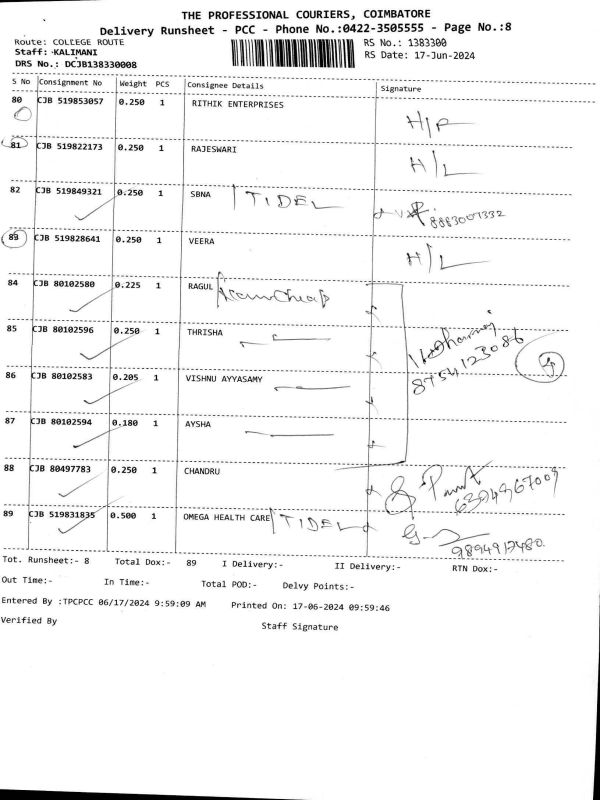 THE PROFESSIONAL COURIERS, COIMBATORE
Delivery Runsheet - PCC - Phone No.:0422-3505555 - Page No.:8
Route: COLLEGE ROUTE RS No.: 1383300
Staff: KALIMANI RS Date: 17-Jun-2024
DRS No.: DCJB138330008
S No Consignment No Weight PCS Consignee Details Signature
80 CJB 519853057 0.250 1 RITHIK ENTERPRISES
81 CJB 519822173 0.250 1 RAJESWARI H/L
82 CJB 519849321 0.250 1 SBNA TIDEL 8883007332
83 CJB 519828641 0.250 1 VEERA H/L
84 CJB 80102580 0.225 1 RAGUL
85 CJB 80102596 0.250 1 THRISHA
8754123086
86 CJB 80102583 0.205 1 VISHNU AYYASAMY
87 CJB 80102594 0.180 1 AYSHA
88 CJB 80497783 0.250 1 CHANDRU
89 CJB 519831835 0.500 1 OMEGA HEALTH CARE TIDEL
Tot. Runsheet:- 8 Total Dox:- 89 I Delivery:- II Delivery:- RTN Dox:-
Out Time:- In Time:- Total POD:- Delvy Points:-
Entered By :TPCPCC 06/17/2024 9:59:09 AM Printed On: 17-06-2024 09:59:46
Verified By Staff Signature